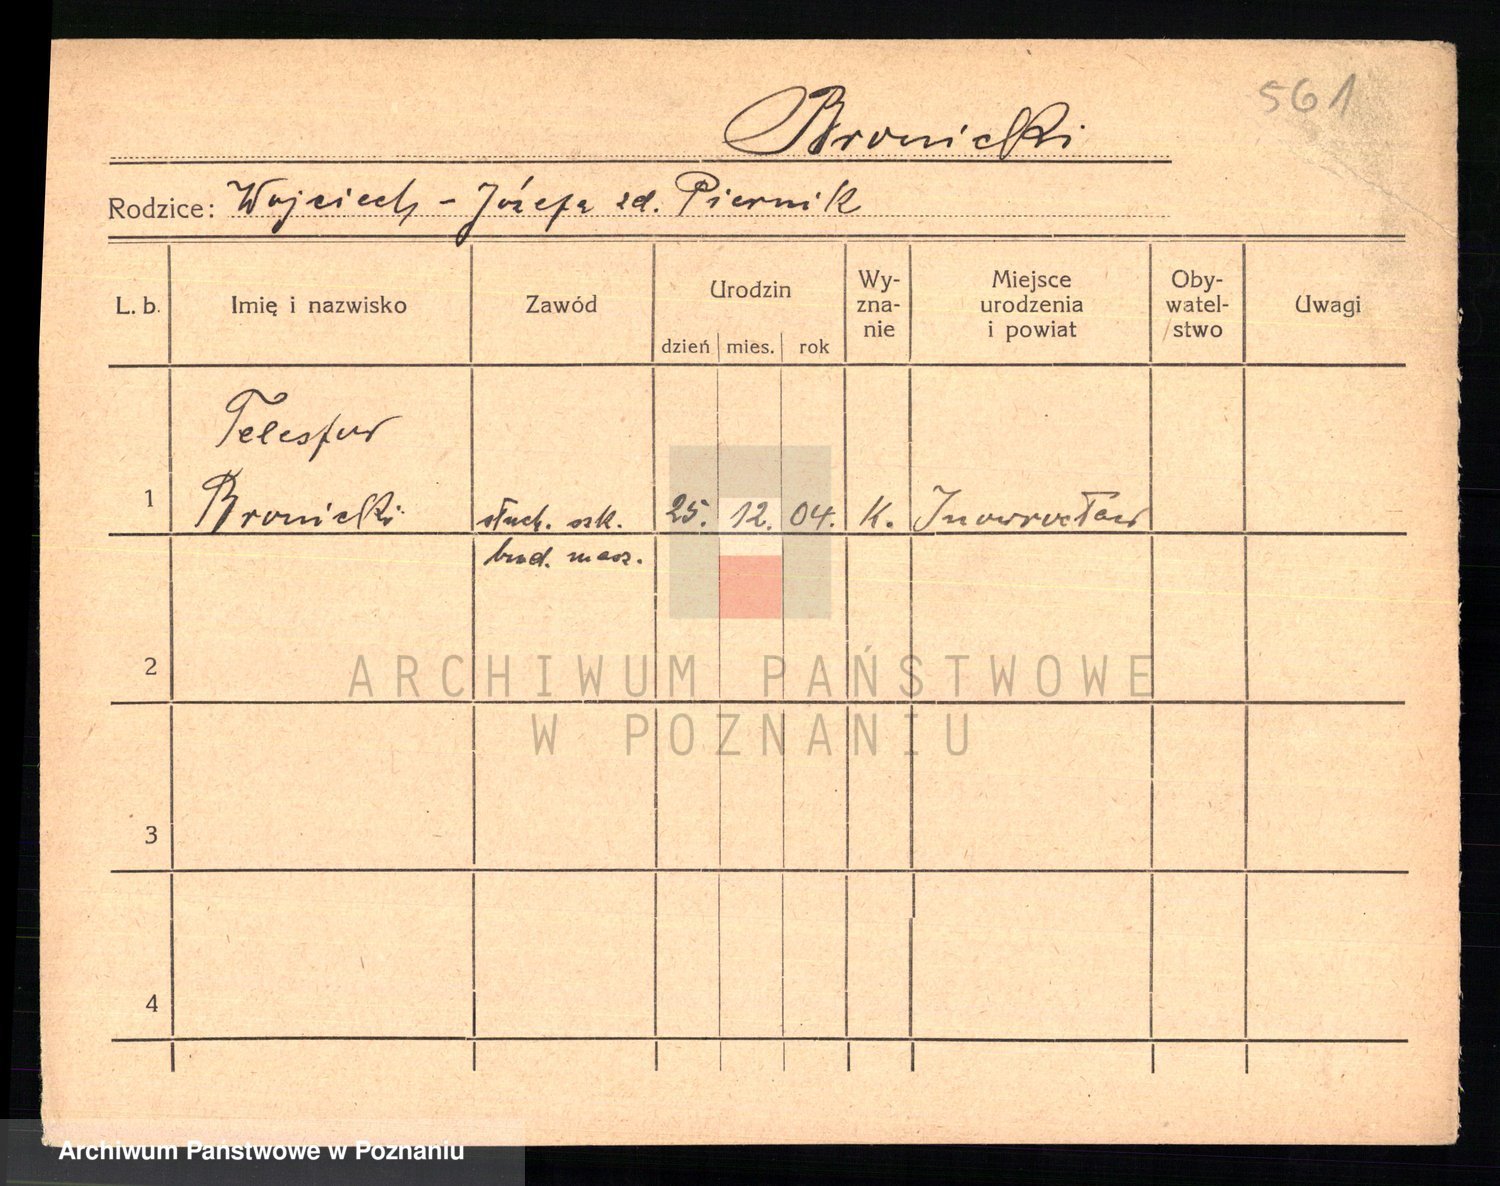 561
Bronicki
Rodzice: Wojciech - Józefa zd. Piernik
L. b.
Imię i nazwisko
Zawód
Urodzin
dzień
mies.
rok
Wy-
zna-
nie
Miejsce
urodzenia
i powiat
Oby-
watel-
stwo
Uwagi
1
Telesfor
Bronicki
słuch. szk.
bud. masz.
25.
12.
04.
K.
Inowrocław
2
3
4
ARCHIWUM PAŃSTWOWE
W POZNANIU
Archiwum Państwowe w Poznaniu